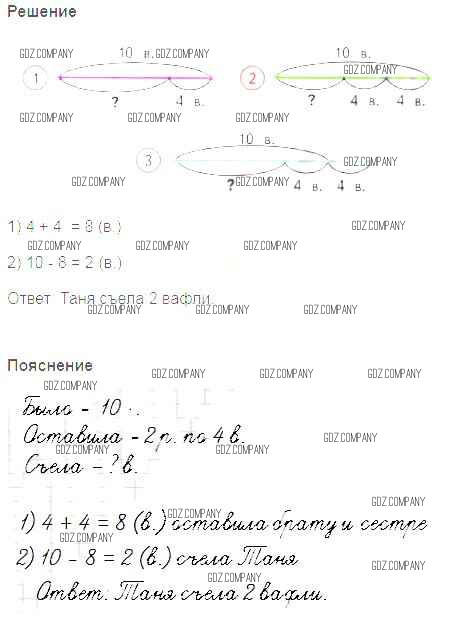 Решение
10 в. GDZ.COMPANY
GDZ.COMPANY
10 в.
GDZ.COMPANY
1
2
? 4 в.
? 4 в. 4 в.
GDZ.COMPANY GDZ.COMPANY GDZ.COMPANY
10 в.
3
GDZ.COMPANY
GDZ.COMPANY ? GDZ.COMPANY 4 в. 4 в.
1) 4 + 4 = 8 (в.)
GDZ.COMPANY
GDZ.COMPANY GDZ.COMPANY GDZ.COMPANY
2) 10 - 8 = 2 (в.)
Ответ Таня съела 2 вафли.
GDZ.COMPANY GDZ.COMPANY GDZ.COMPANY
Пояснение
GDZ.COMPANY GDZ.COMPANY GDZ.COMPANY
GDZ.COMPANY
Было - 10 .
Оставила - 2 р. по 4 в.
GDZ.COMPANY
GDZ.COMPANY GDZ.COMPANY GDZ.COMPANY
Съела - ? в.
GDZ.COMPANY
GDZ.COMPANY
1) 4 + 4 = 8 (в.) оставила брату и сестре
GDZ.COMPANY
2) 10 - 8 = 2 (в.) съела Таня
GDZ.COMPANY
GDZ.COMPANY
Ответ: Таня съела 2 вафли.